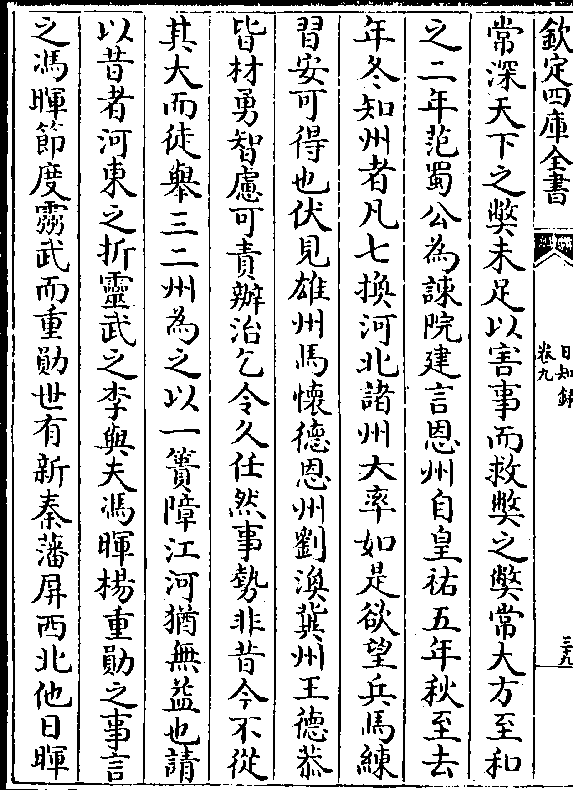 欽定四庫全書
日知錄
卷九
三十九
常深天下之獘未足以害事而救獘之獘常大方至和
之二年范蜀公為諫院建言恩州自皇祐五年秋至去
年冬知州者凡七換河北諸州大率如是欲望兵馬練
習安可得也伏見雄州馬懷德恩州劉渙冀州王德恭
皆材勇智慮可責辦治乞令久任然事勢非昔今不從
其大而徒舉三二州為之以一簣障江河猶無益也請
以昔者河東之折靈武之李與夫馮暉楊重勛之事言
之馮暉節度靈武而重勛世有新秦藩屏西北他日暉